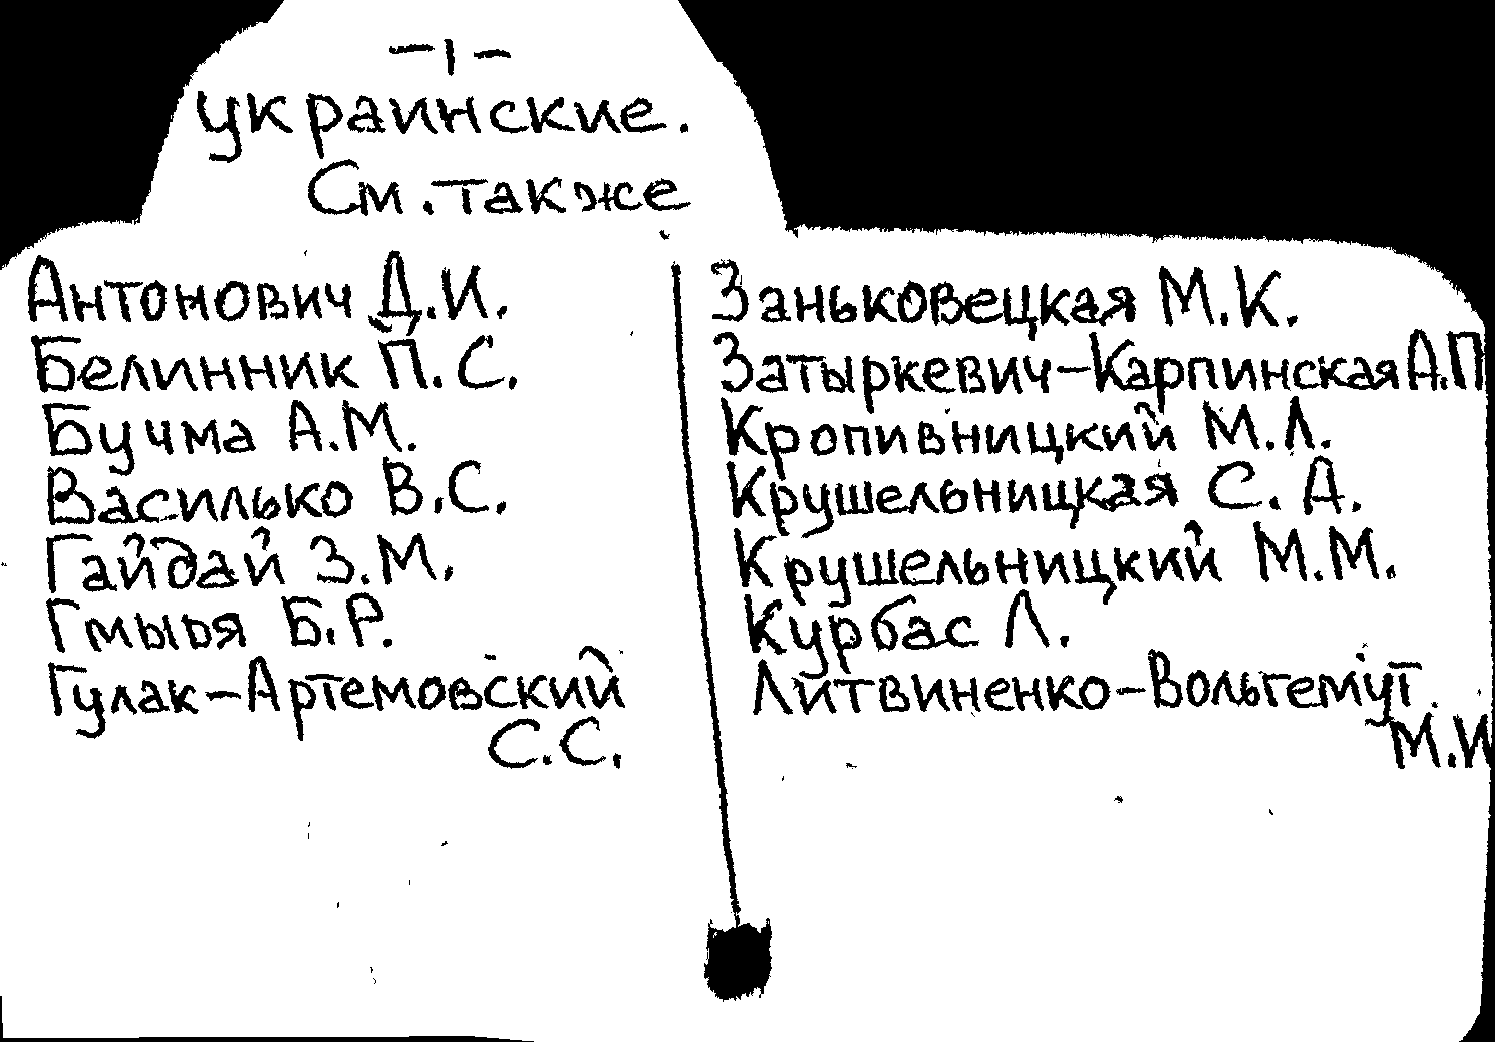 -1-
украинские.
См. также
Антонович Д.И.
Белинник П.С.
Бучма А.М.
Василько В.С.
Гайдай З.М.
Гмыря Б.Р.
Гулак-Артемовский
С.С.
Заньковецкая М.К.
Затыркевич-Карпинская А.П
Кропивницкий М.Л.
Крушельницкая С.А.
Крушельницкий М.М.
Курбас Л.
Литвиненко-Вольгемут
М.И